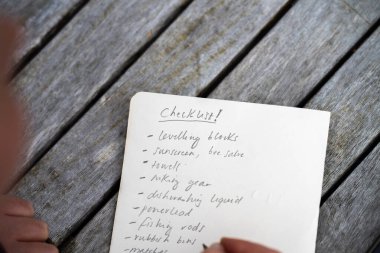 Checklist!
- levelling blocks
- sunscreen, bee salve
- towels
- hiking gear
- dishwashing liquid
- powerlead
- fishing rods
- rubbish bins
- matches